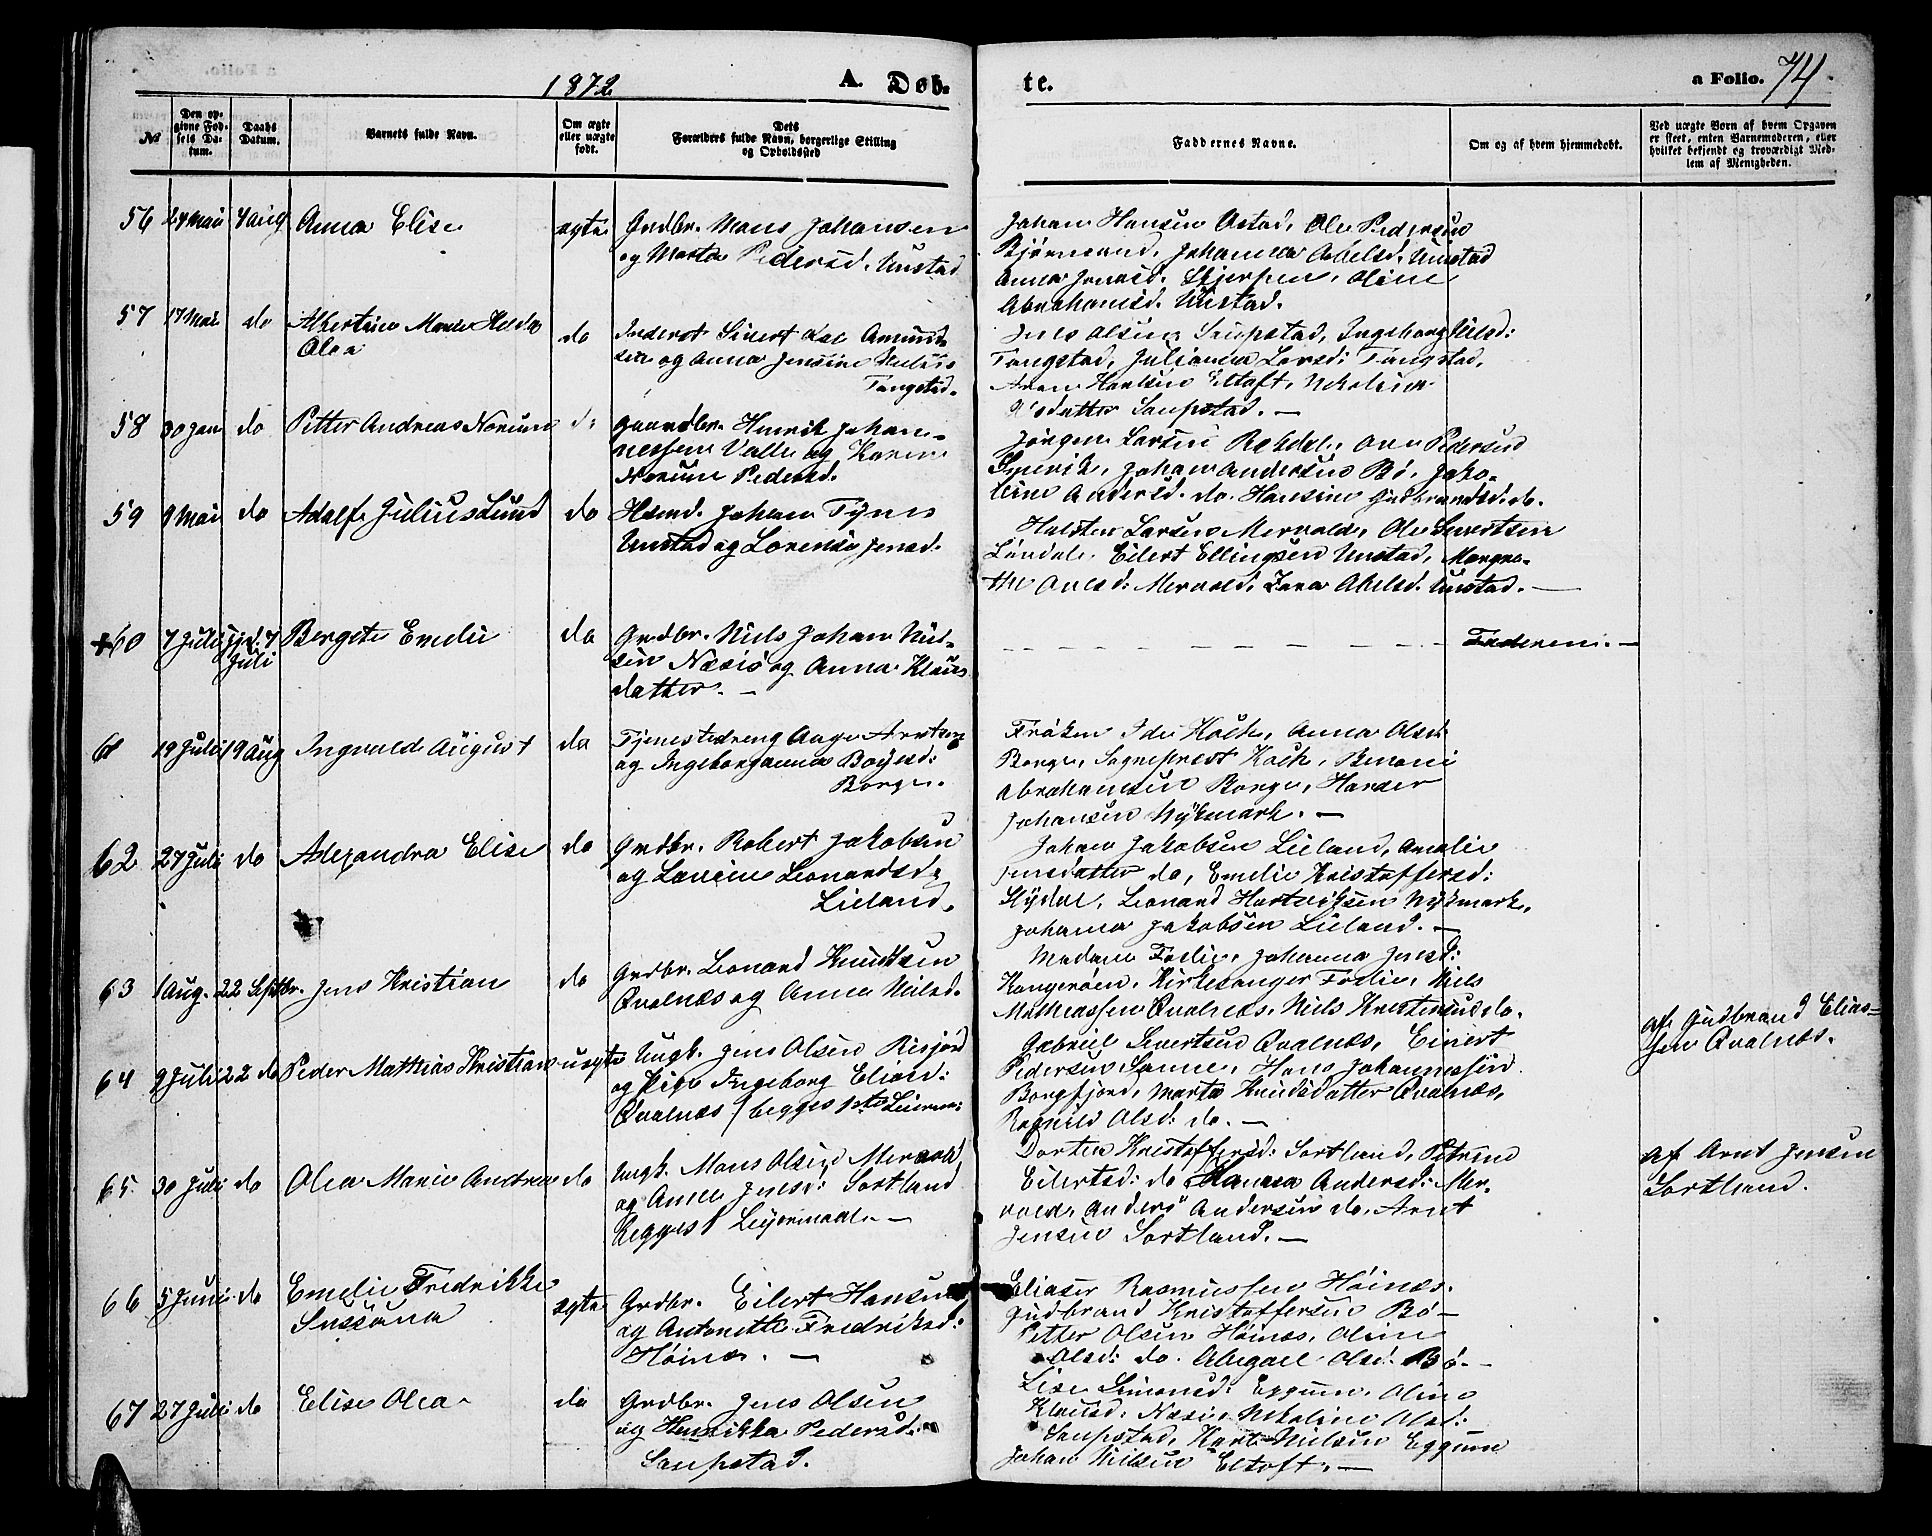 1872 A. Døb- te. a Folio. 74.
No
Den opgivne Fødsels Datum.
Daabs Datum.
Barnets fulde Navn.
Om ægte eller uægte født.
Dets Forældres fulde Navn, borgerlige Stilling og Opholdssted
Faddernes Navne.
Om og af hvem hjemmedøbt.
Ved uægte Børn af hvem Opgaven er skeet, enten Barnemoderen, eller hvilket bekjendt og troværdigt Medlem af Menigheden.
56 24 Mai 4 Aug Anna Elise ægte Grdbr. Mons Johansen
og Marta Pedersd. Unstad
Johan Hansen Ostad, Ole Pedersen
Bjørnsand, Johanna Abelsd. Unstad
Anna Jensd. Skjerpen, Oline
Abrahamsd. Unstad.
57 17 Mai do Albertine Marie Helda
Olea
do Inderst Sivert Amund-
sen og Anna Jensine Nielsd
Tangstad.
Jens Olsen Saupstad, Ingeborg Nilsd:
Tangstad, Julianna Larsd: Tangstad,
Hansen Eltoft, Nikolina
datter Saupstad. —
58 30 Jan do Petter Andreas Norum do Gaardbr. Henrik Johan-
nessen Valle og Karen
Norum Pedersd.
Jørgen Larsen Rebdal, Pedersen
Johan Andersen Bø, Jako-
bine Andersd. do. Hansine Gudbrandsd. do.
59 9 Mai do Adolf Julius Lund do Hsmd. Johan Tynes
Unstad og Lorense Jensd.
Halsten Larsen Mervold, Ole Sivertsen
Lindal, Eilert Ellingsen Unstad, Margre-
the Olesd: Mervold, Abelsd. Unstad. —
+60 7 Juli hjd. 7
Juli
Bergete Emelie do Grdbr. Niels Johan Niel-
sen Næsie og Anna Klaus
datter. —
Faderen. —
61 19 Juli 19 Aug Ingvald August do Tjenestedreng Aage Arntsen
og Ingeborganna Boyesd:
Borge.
Frøken Ida Koch, Anna Olsd:
Borge, Sognepræst Koch, Benoni
Abrahamsen Borge,
Johansen Nykmark. —
62 27 Juli do Alexandra Elise do Grdbr. Robert Jakobsen
og Lovine Leonardsd.
Lieland.
Johan Jakobsen Lieland, Amalie
Jensdatter do, Emelie Kristoffersd:
Leonard Hartviksen Nykmark,
Johanna Jakobsen Lieland. —
63 1 Aug. 22 Septbr. Jens Kristian do Grdbr. Leonard Knudsen
Qvalnæs og Anna Nielsd.
Madam Foslie, Johanna Jensd:
Kangerøen, Kirkesanger Foslie, Niels
Mathiassen Qvalnæs, Niels Kristensen do.
64 9 Juli 22 do Peder Mathias Kristian uægte Ungk. Jens Olsen Risjord
og Pige Ingeborg Eliasd:
Qvalnæs (begges 1ste Leierm:
Gabriel Sivertsen Qvalnæs, Einert
Pedersen Sanne, Hans Johannesen
Borgfjord, Marta Knudsdatter Qvalnæs,
Ragnild Olsd: do. —
af Gudbrand Elias-
sen Qvalnæs.
65 30 Juli do Olea Marie Andrea do Ungk. Mons Olsen Mervold
og Anne Jensd: Sortland
begges 1 Leiermaal. —
Dortea Kristoffersd: Sortland, Petrine
Eilertsd: do Hanna Andersd: Mer-
vold, Anders Andersen do, Arnt
Jensen Sortland. —
af Arnt Jensen
Sortland.
66 5 Juni do Emelie Fredrikke
Susana
ægte Grdbr. Eilert Hansen
og Antonette Fredriksd:
Høinæs. —
Eliaser Rasmussen Høinæs.
Gudbrand Kristoffersen Bø —
Petter Olsen Høinæs, Oline
Olsd: do. Abigael Olsd. Bø. —
67 27 Juli do Elise Olea do Grdbr. Jens Olsen
og Henrikka Pedersd:
Saupstad.
Lise Simonsd: Eggum, Oline
Klausd. Næsie, Nikoline Olsd:
Saupstad, Kort Nielsen Eggum
Johan Nielsen Eltoft. —